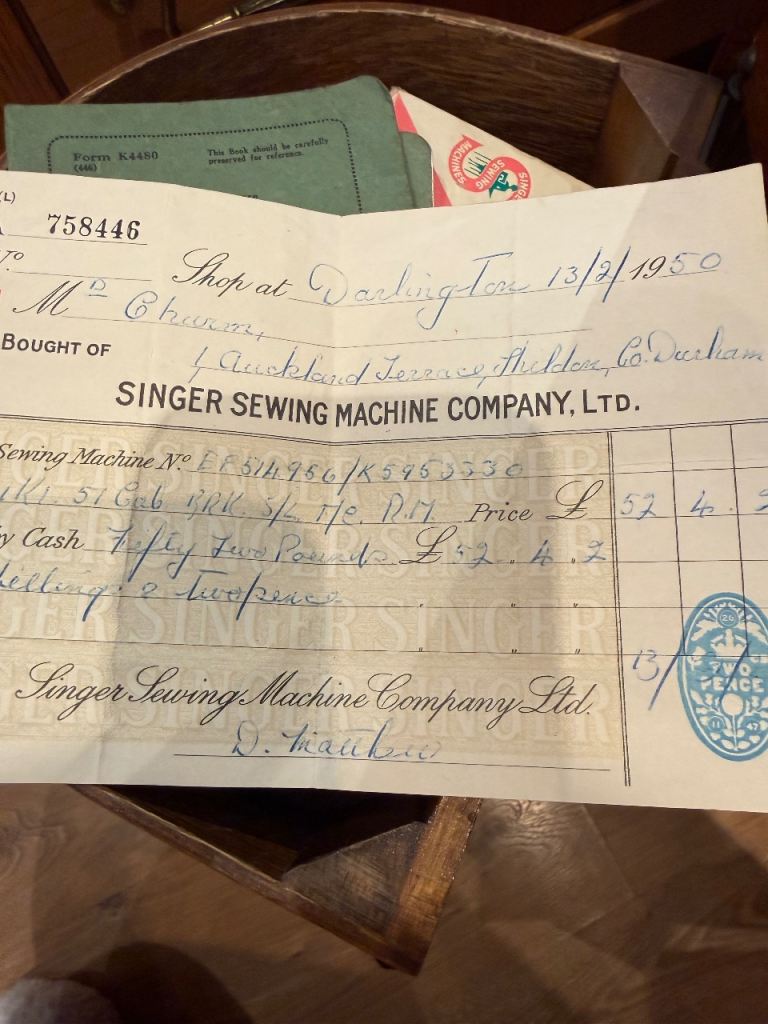 Form K4480
(446)
This Book should be carefully
preserved for reference.
SINGER
SEWING
MACHINES
(L)
758446
Shop at Darlington 13/2/1950
Mᴰ Charm,
BOUGHT OF
1, Auckland Terrace, Shildon, Co. Durham
SINGER SEWING MACHINE COMPANY, LTD.
Sewing Machine Nº EF514956/K5953330
51 Cab BRK. S/L M/C. R.M. Price £ 52 4
By Cash Fifty Two Pounds £ 52 . 4 . 2
Shillings & Twopence
13/
TWO
PENCE
Singer Sewing Machine Company Ltd.
D. Matthew